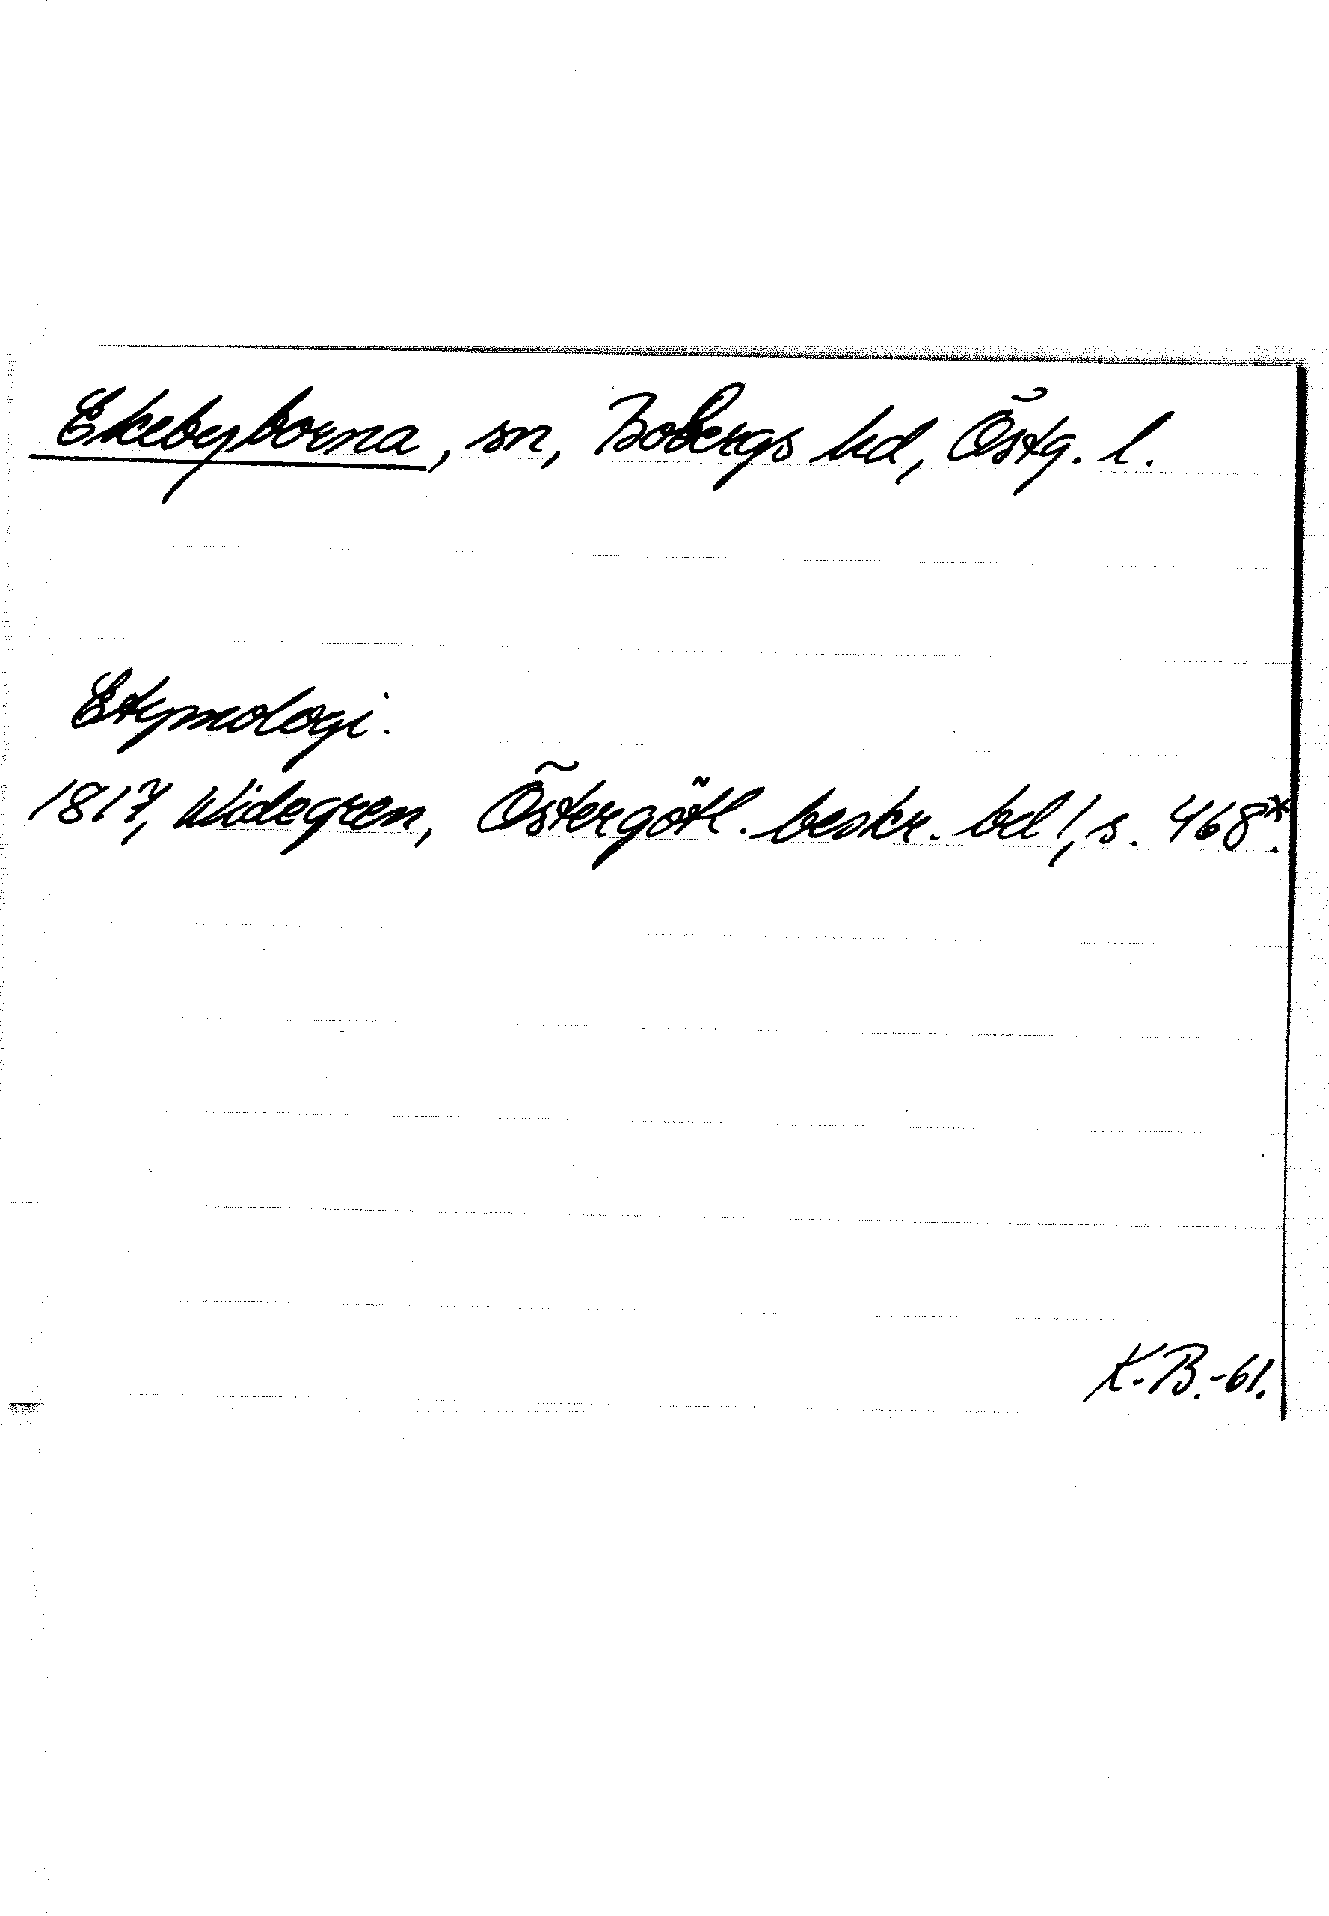 Ekebyborna, sn, Bobergs hd, Östg. l.
Etymologi.
1817, Widegren, Östergötl. beskr. bd 1, s. 468*.
K.B.-61.